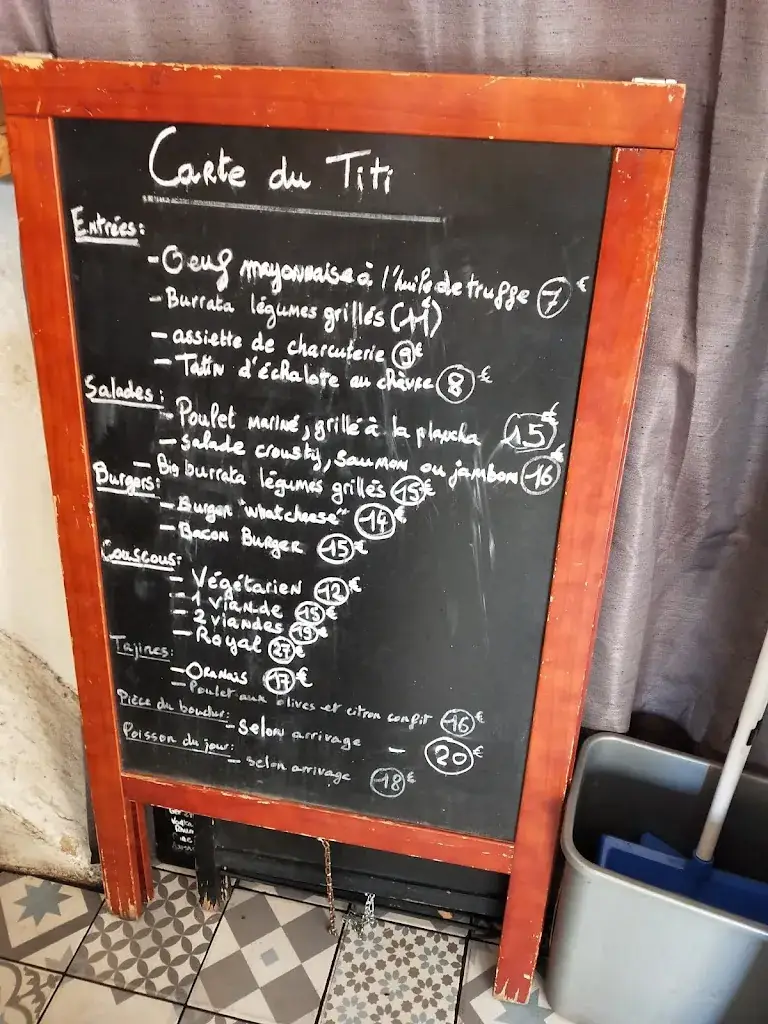 Carte du Titi
Entrées:
- Oeuf mayonnaise à l'huile de truffe 7€
- Burrata légumes grillés (11€)
- assiette de charcuterie 9€
- Tatin d'échalote au chèvre 8€
Salades:
- Poulet mariné, grillé à la plancha 15€
- Salade crousty, saumon ou jambon 16€
- Big burrata légumes grillés 15€
Burgers:
- Burger "whatcheese" 14€
- Bacon Burger 15€
Couscous:
- Végétarien 12€
- 1 viande 15€
- 2 viandes 19€
- Royal €
Tajines:
- Oranais 17€
- Poulet aux olives et citron confit 16€
Pièce du boucher:
- Selon arrivage - 20€
Poisson du jour:
- Selon arrivage 18€